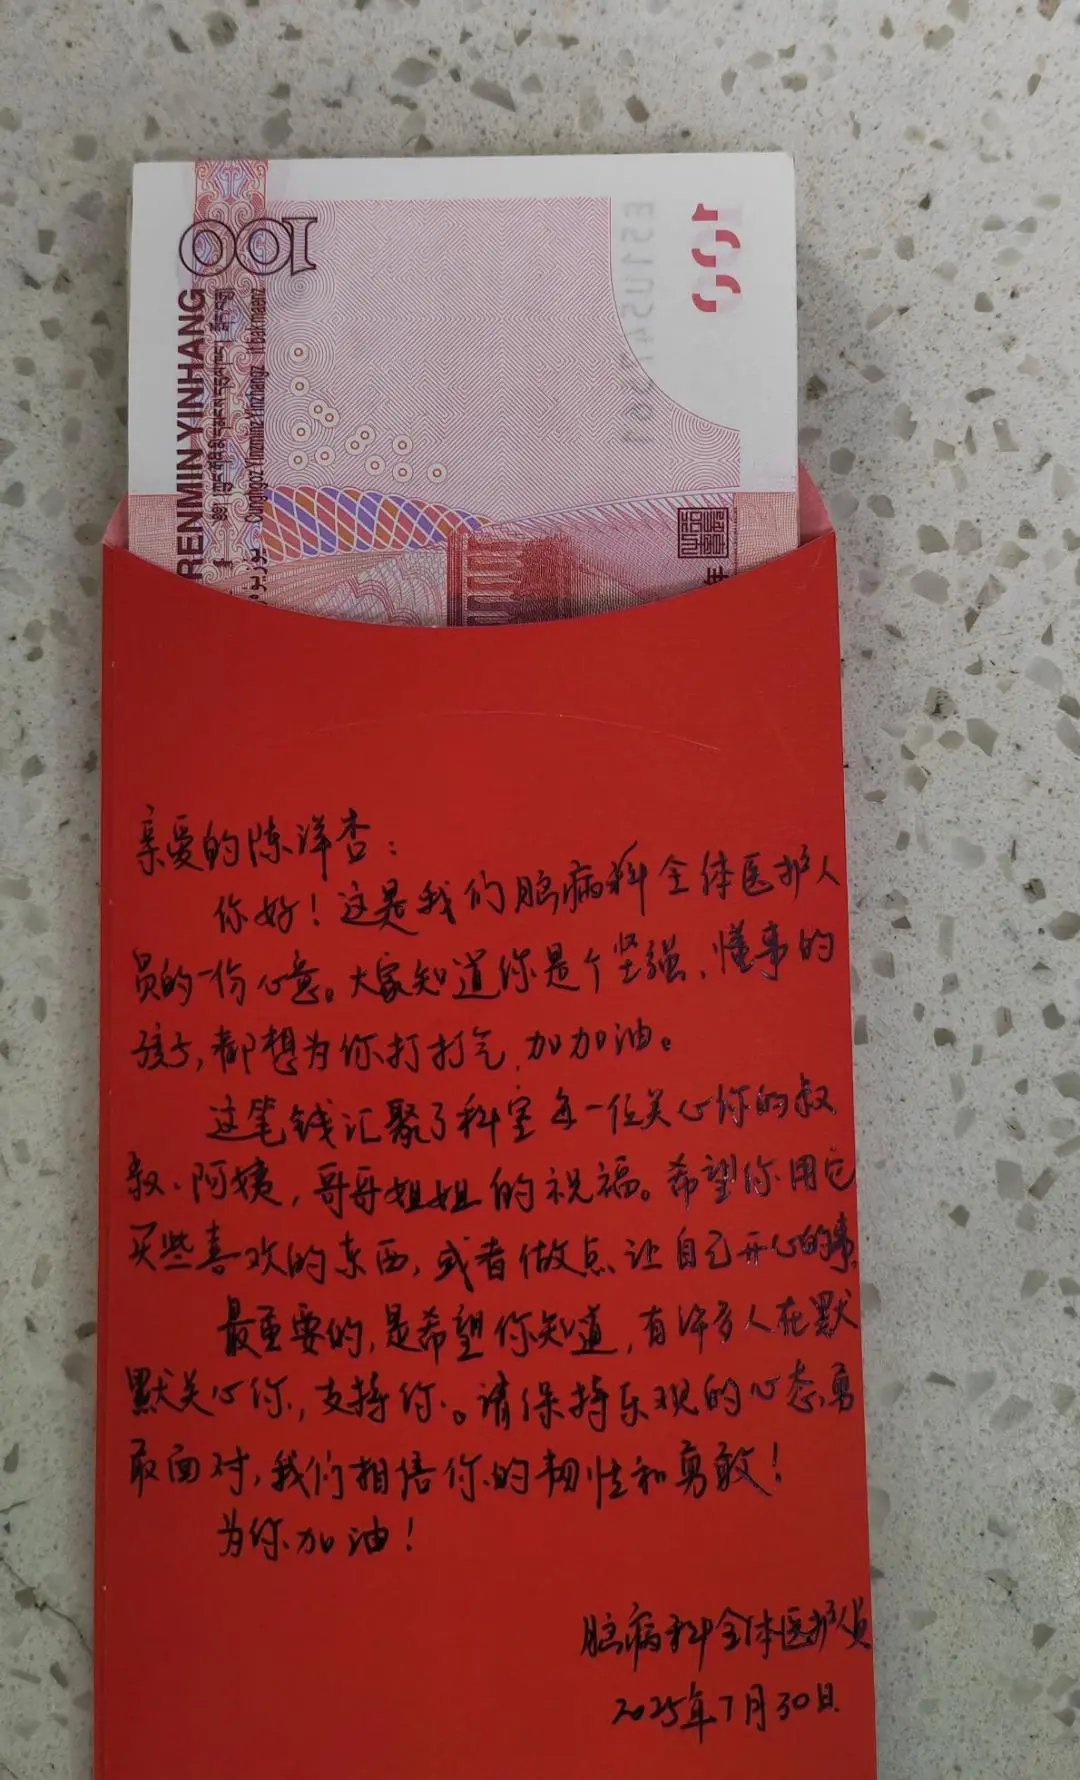 100
RENMIN YINHANG
Cunghgoz Yinzminz Yinzhangz it bak maenz
100
亲爱的陈洋杏：
你好！这是我们脑病科全体医护人
员的一份心意。大家知道你是个坚强、懂事的
孩子，都想为你打打气，加加油。
这笔钱汇聚了科室每一位关心你的叔
叔、阿姨，哥哥姐姐的祝福。希望你用它
买些喜欢的东西，或者做点让自己开心的事。
最重要的，是希望你知道，有许多人在默
默关心你，支持你。请保持乐观的心态，勇
敢面对，我们相信你的韧性和勇敢！
为你加油！
脑病科全体医护人员
2025年7月30日